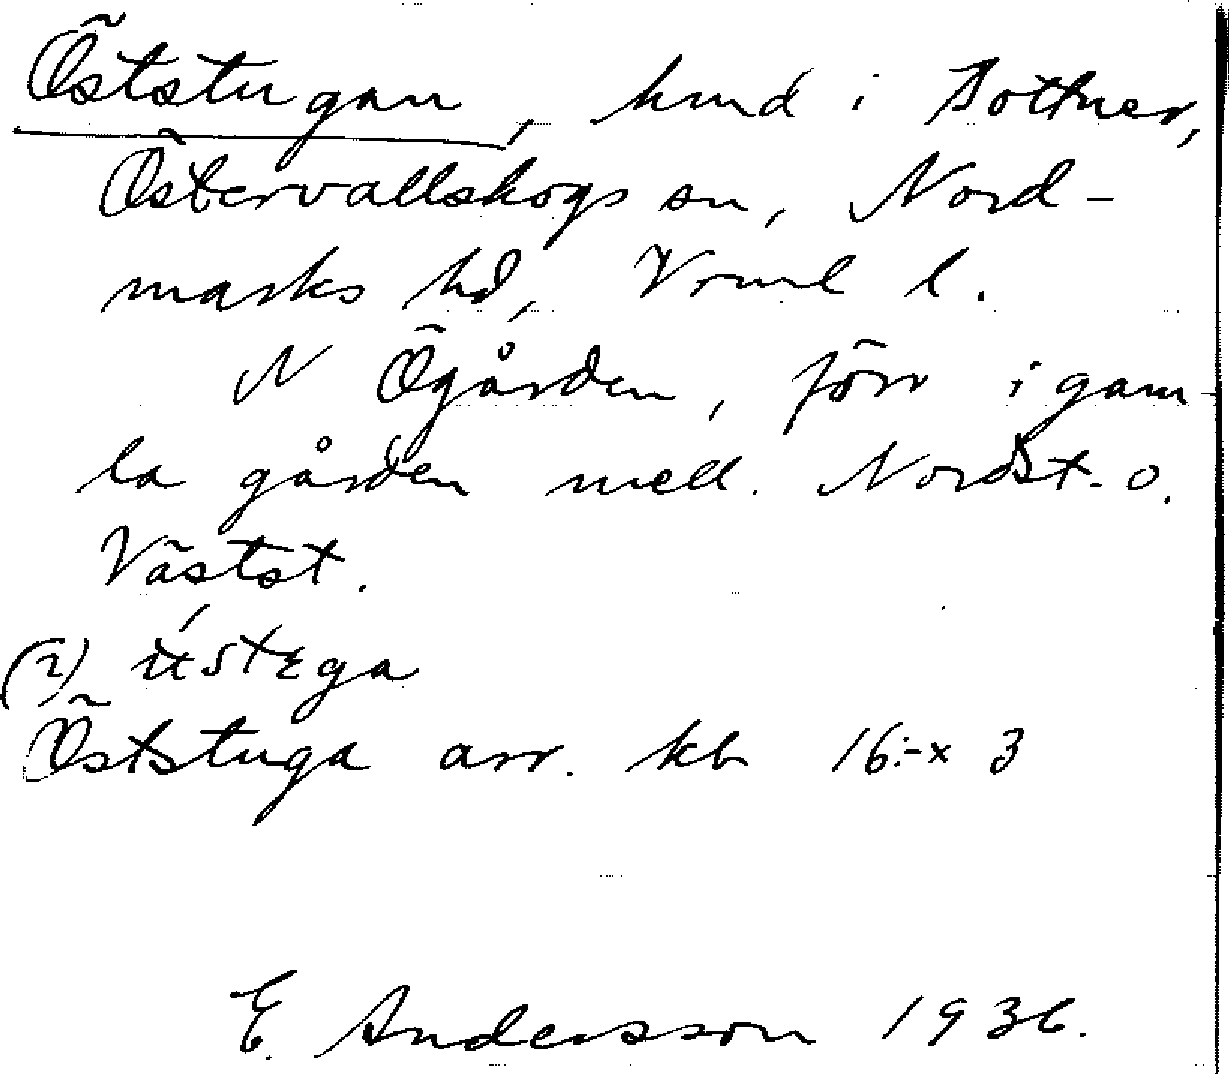 Öststugan, hmd i Bottner,
Östervallskogs sn, Nord-
marks hd, Vrml l.
N Ögården, förr i gam
la gården mell. Nordst- o.
Västst.
Öststuga arr. kb 16:-x 3
E. Andersson 1936.